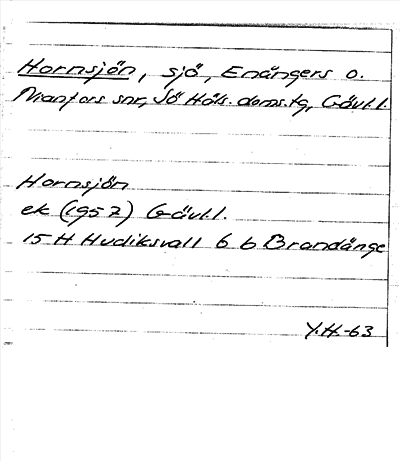 Hornsjön, sjö, Enångers o.
Njanfors snr, Sö Häls. doms.tg, Gävl.l.
Hornsjön
ek (1957) Gävl.l.
15 H Hudiksvall 6 b Brandänge
Y.H.-63